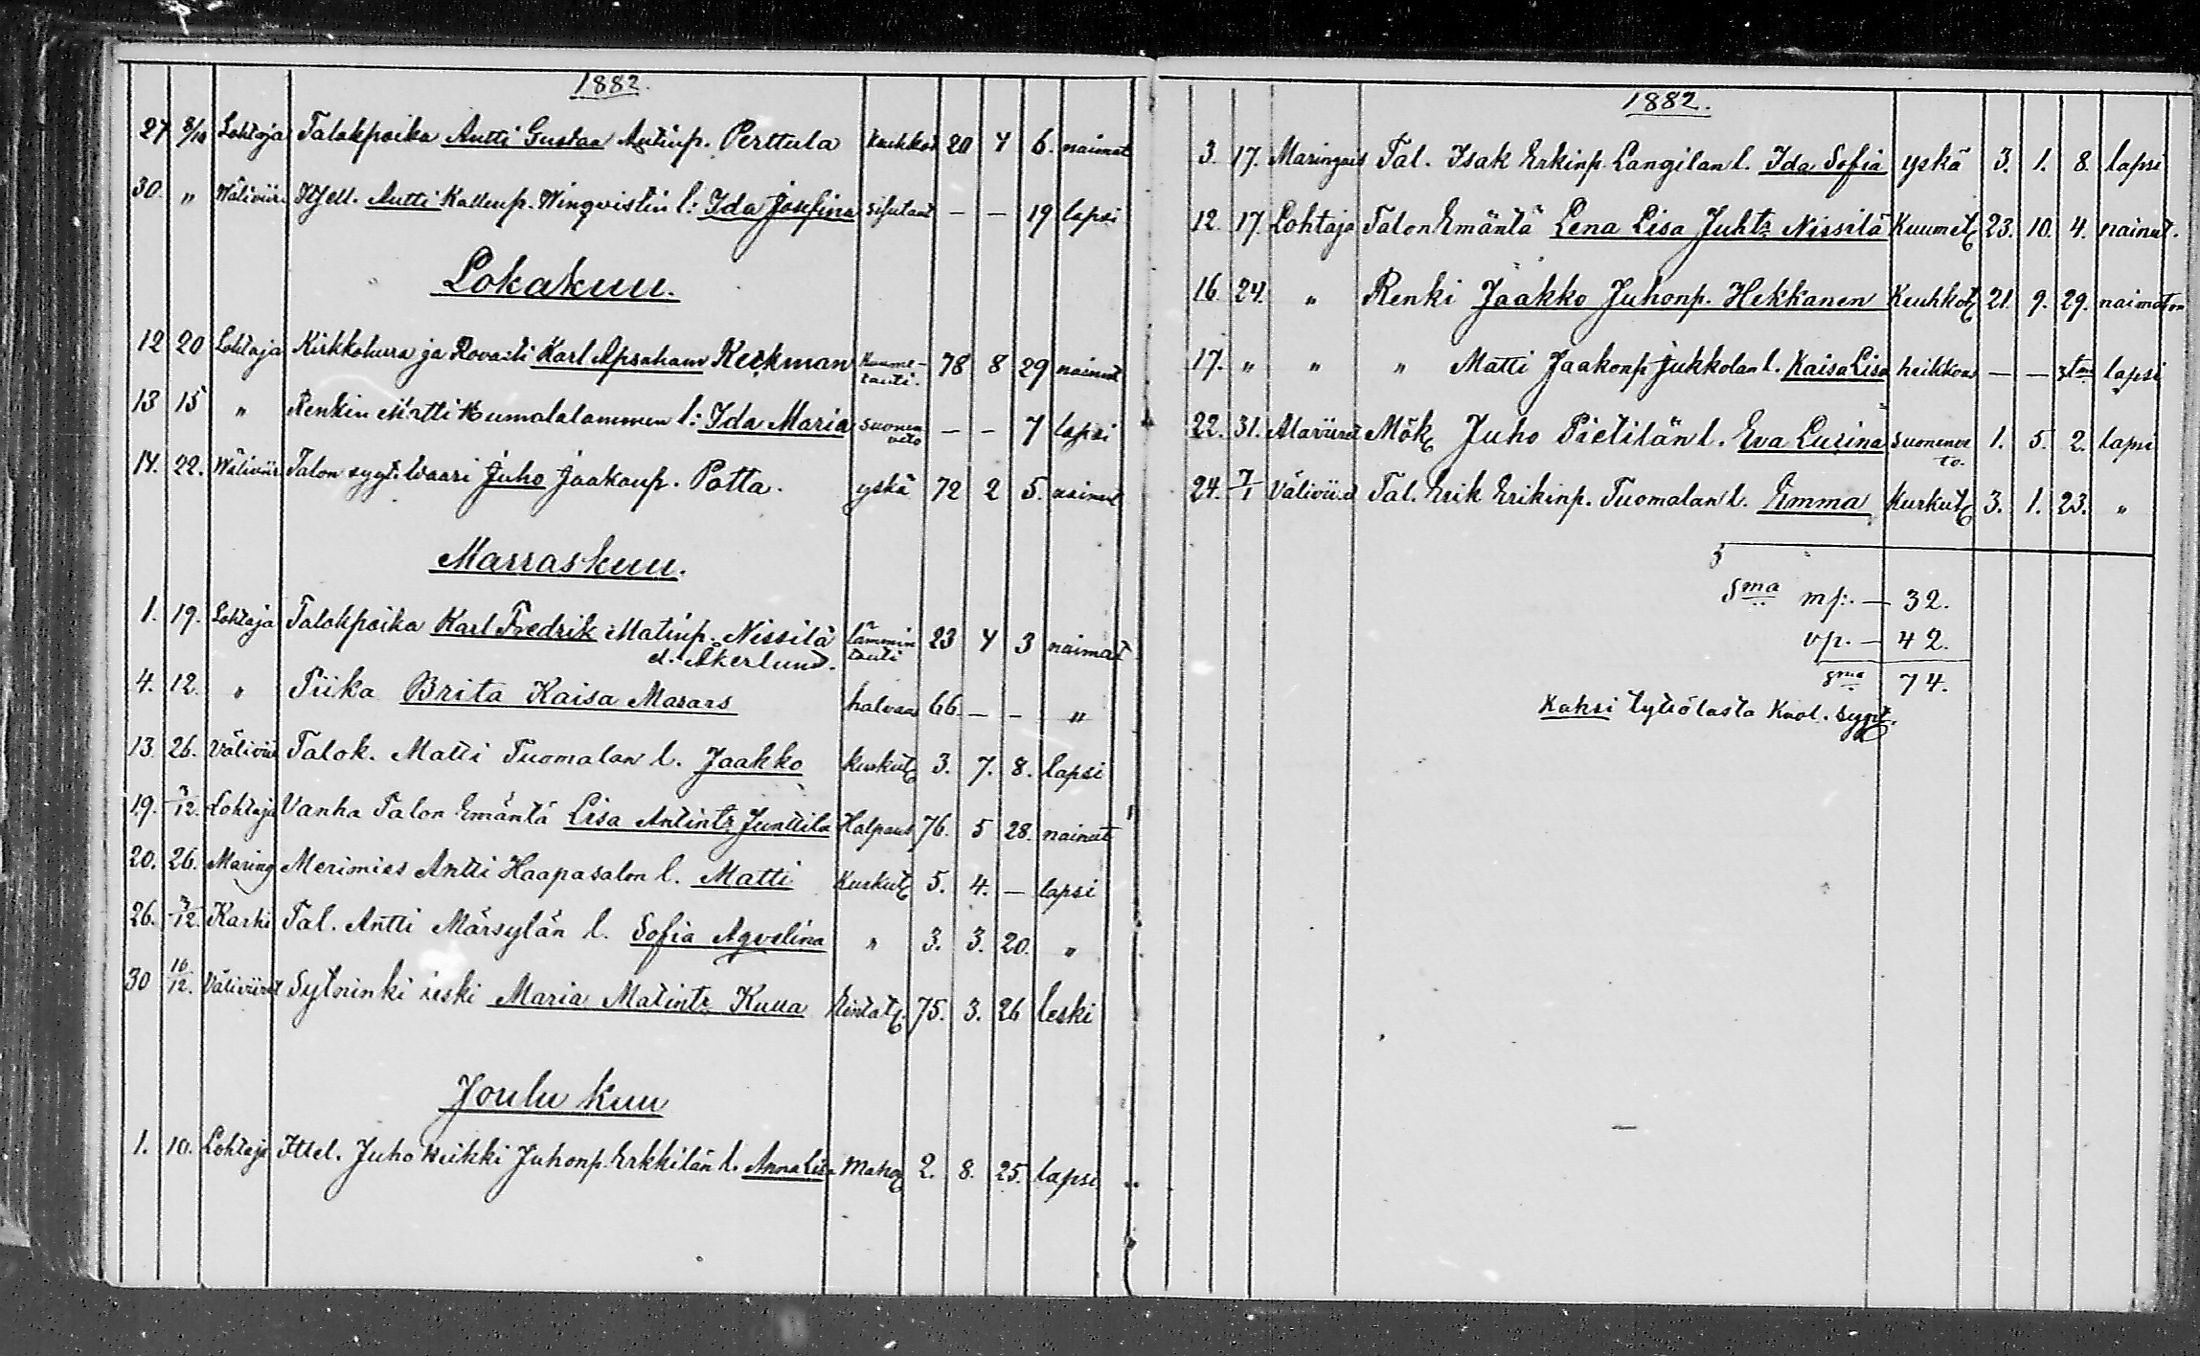 1882.
27 8/10 Lohtaja Talokpoika Antti Gustaa Antinp. Perttula Keuhkot 20 4 6. naimat
30. " Wäliviir Itsell. Antti Kallenp. Winqvistin l: Ida Josefina - - 19 lapsi
Lokakuu.
12 20 Lohtaja Kirkkoherra ja Rovasti Karl Apraham Keckman Kuume- 78 8 29 nainut
tauti.
13 15 " Renkin Martti Humalalammen l: Ida Maria suonen - - 7 lapsi
veto
14. 22. Wäliviir Talon syyt. Waari Juho Jaakonp. Potta. yskä 72 2 5. nainut
Marraskuu.
1. 19. Lohtaja Talokpoika Karl Fredrik Matinp. Nissilä lämmin 23 4 3 naimat
el. Åkerlund. tauti
4. 12. " Piika Brita Kaisa Marars halvaus 66. - - "
13. 26. Väliviir Talok. Matti Tuomalan l. Jaakko Kurkut 3. 7. 8. lapsi
19. 3/12. Lohtaja Vanha Talon Emäntä Lisa Antintr Junttila Halpaus 76. 5 28. nainut
20. 26. Maring Merimies Antti Haapasalon l. Matti Kurkut 5. 4. - lapsi
26. 3/12. Karhi Tal. Antti Märsylän l. Sofia Aqvelina " 3. 3. 20. "
30 10/12. Väliviiret Sytninki leski Maria Matintr Kuua Rintat 75. 3. 26 leski
Joulu kuu
1. 10. Lohtaja Ittel. Juho Heikki Juhonp. Erkkilän l. Anna Lisa Mahot 2. 8. 25. lapsi
1882.
3. 17. Maringais Tal. Isak Erkinp. Langilan l. Ida Sofia yskä 3. 1. 8. lapsi
12. 17. Lohtaja Talon Emäntä Lena Lisa Juhtr Nissilä Kuumet 23. 10. 4. nainut.
16. 24. " Renki Jaakko Juhonp. Hekkanen Keuhkot 21. 9. 29. naimaton
17. " " " Matti Jaakonp Jukkolan l. Kaisa Lisa heikkous - - 3tm lapsi
22. 31. Alaviiret Mök Juho Pietilän l. Eva Lusina suonenve 1. 5. 2. lapsi
to.
24. 7/1 Väliviiret Tal. Erik Erikinp. Tuomalan l. Emma Kurkut 3. 1. 23. "
Sma mp. - 32.
vp. - 42.
sma 74.
Kahsi tyttölasta Kuol. synt.